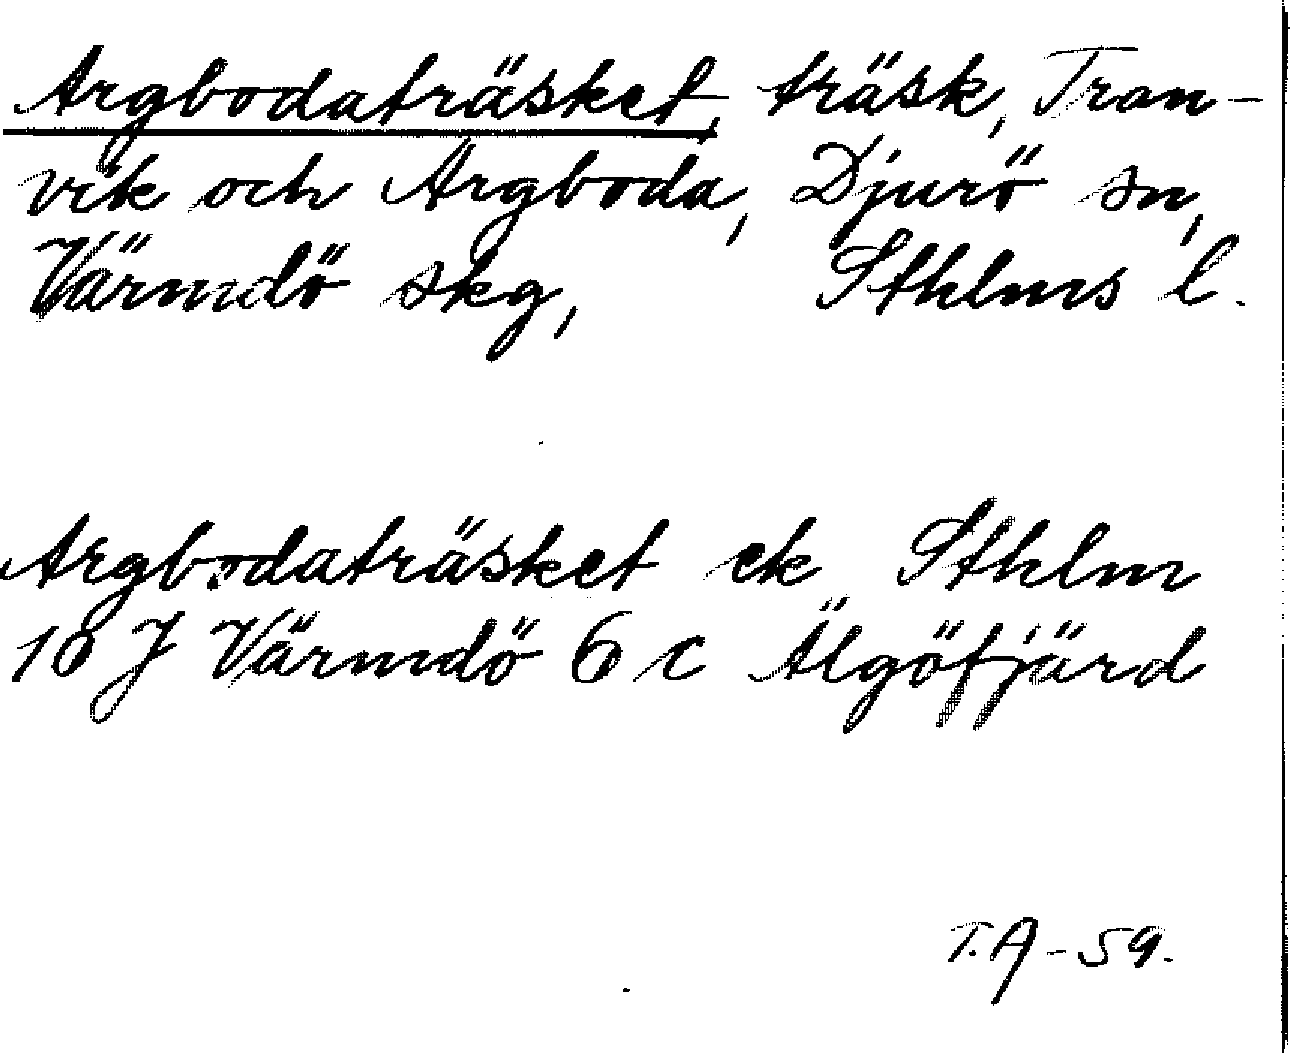 Argbodaträsket, träsk, Tran-
vik och Argboda, Djurö sn,
Värmdö skg, Sthlms l.
Argbodaträsket ek Sthlm
10 J Värmdö 6 c Älgöfjärd
T.A-59.